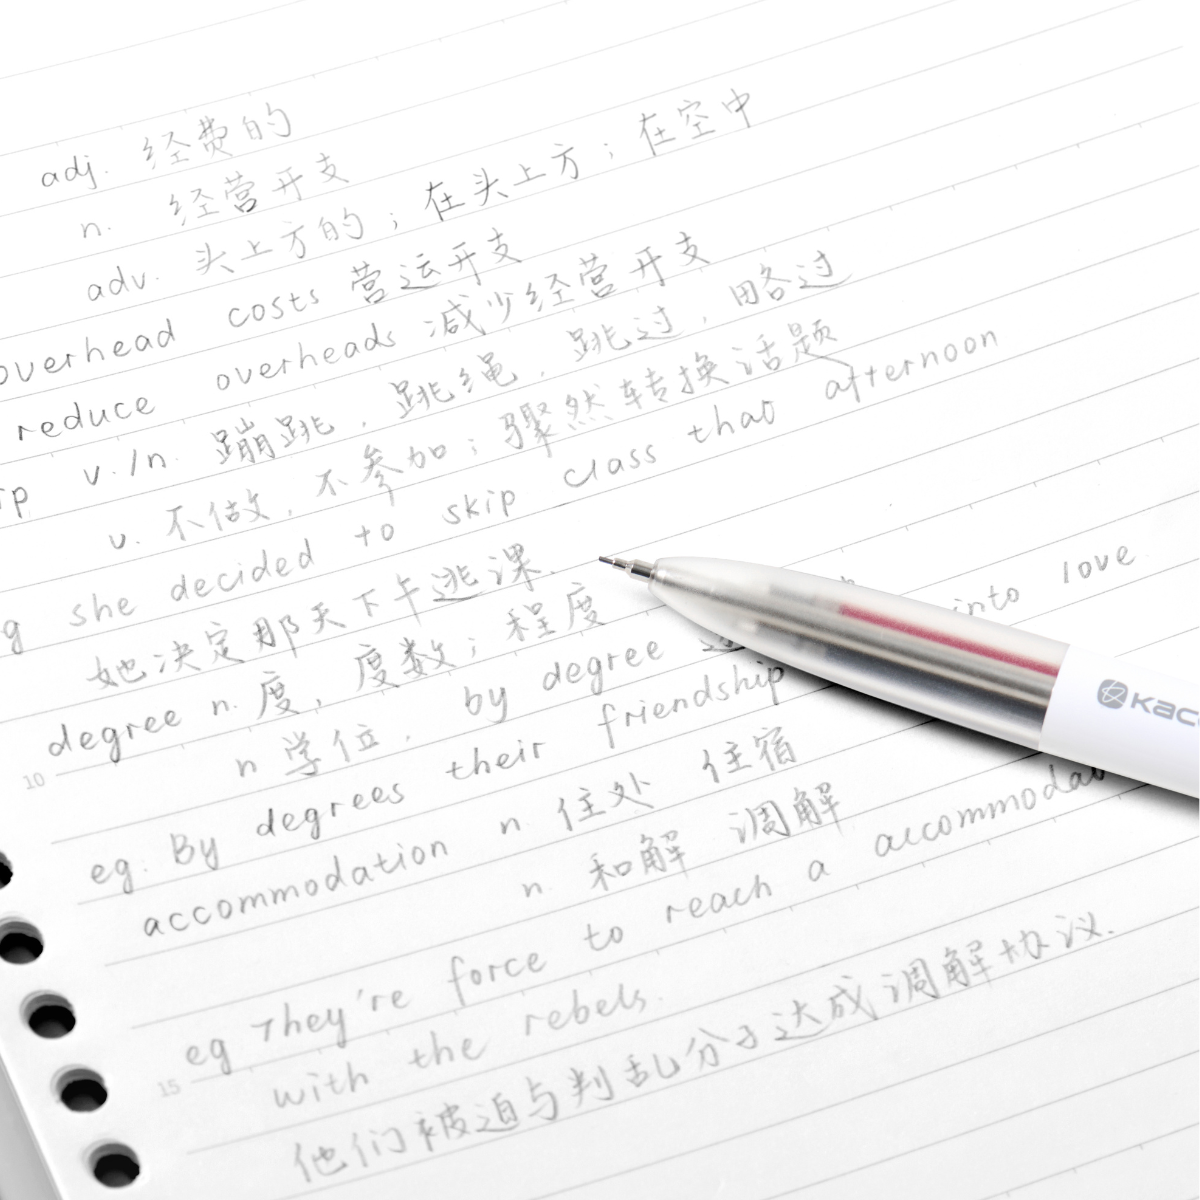 adj. 经费的
n. 经营开支
adv. 头上方的；在头上方；在空中
overhead costs 营运开支
reduce overheads 减少经营开支
v./n. 蹦跳，跳绳，跳过，略过
v. 不做，不参加；骤然转换话题
she decided to skip class that afternoon
她决定那天下午逃课.
degree n. 度，度数；程度
n 学位， by degree
eg. By degrees their friendship into love
accommodation n. 住处 住宿
n. 和解 调解
eg They're force to reach a accommodat
with the rebels.
他们被迫与判乱分子达成调解协议.
10
15
KACO